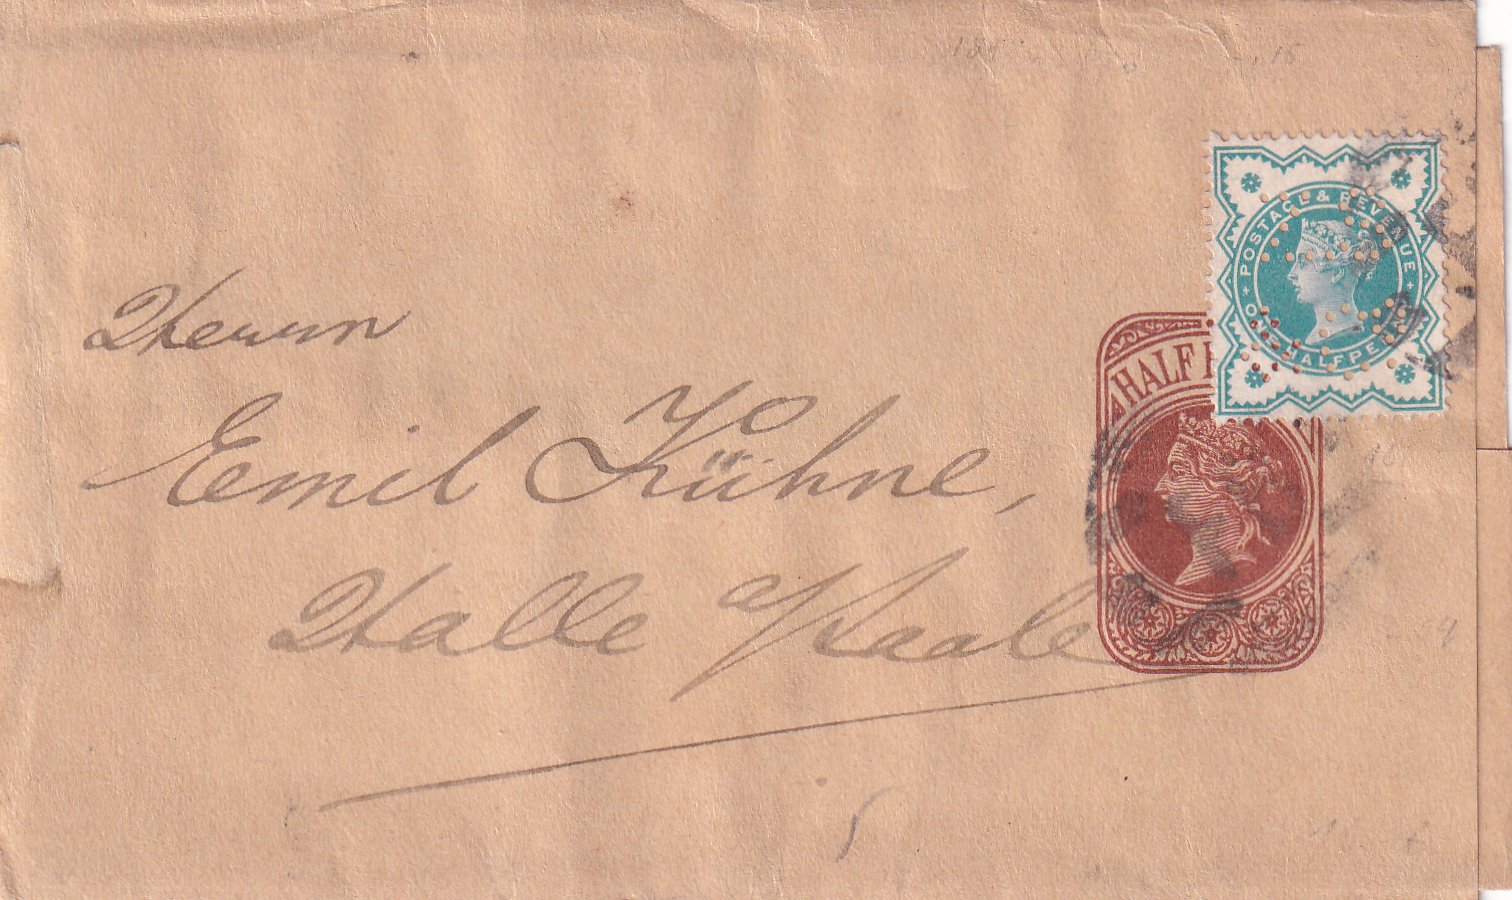 Herrn
Emil Kühne,
Halle /Saale
POSTAGE & REVENUE
ONE HALFPENNY
HALF